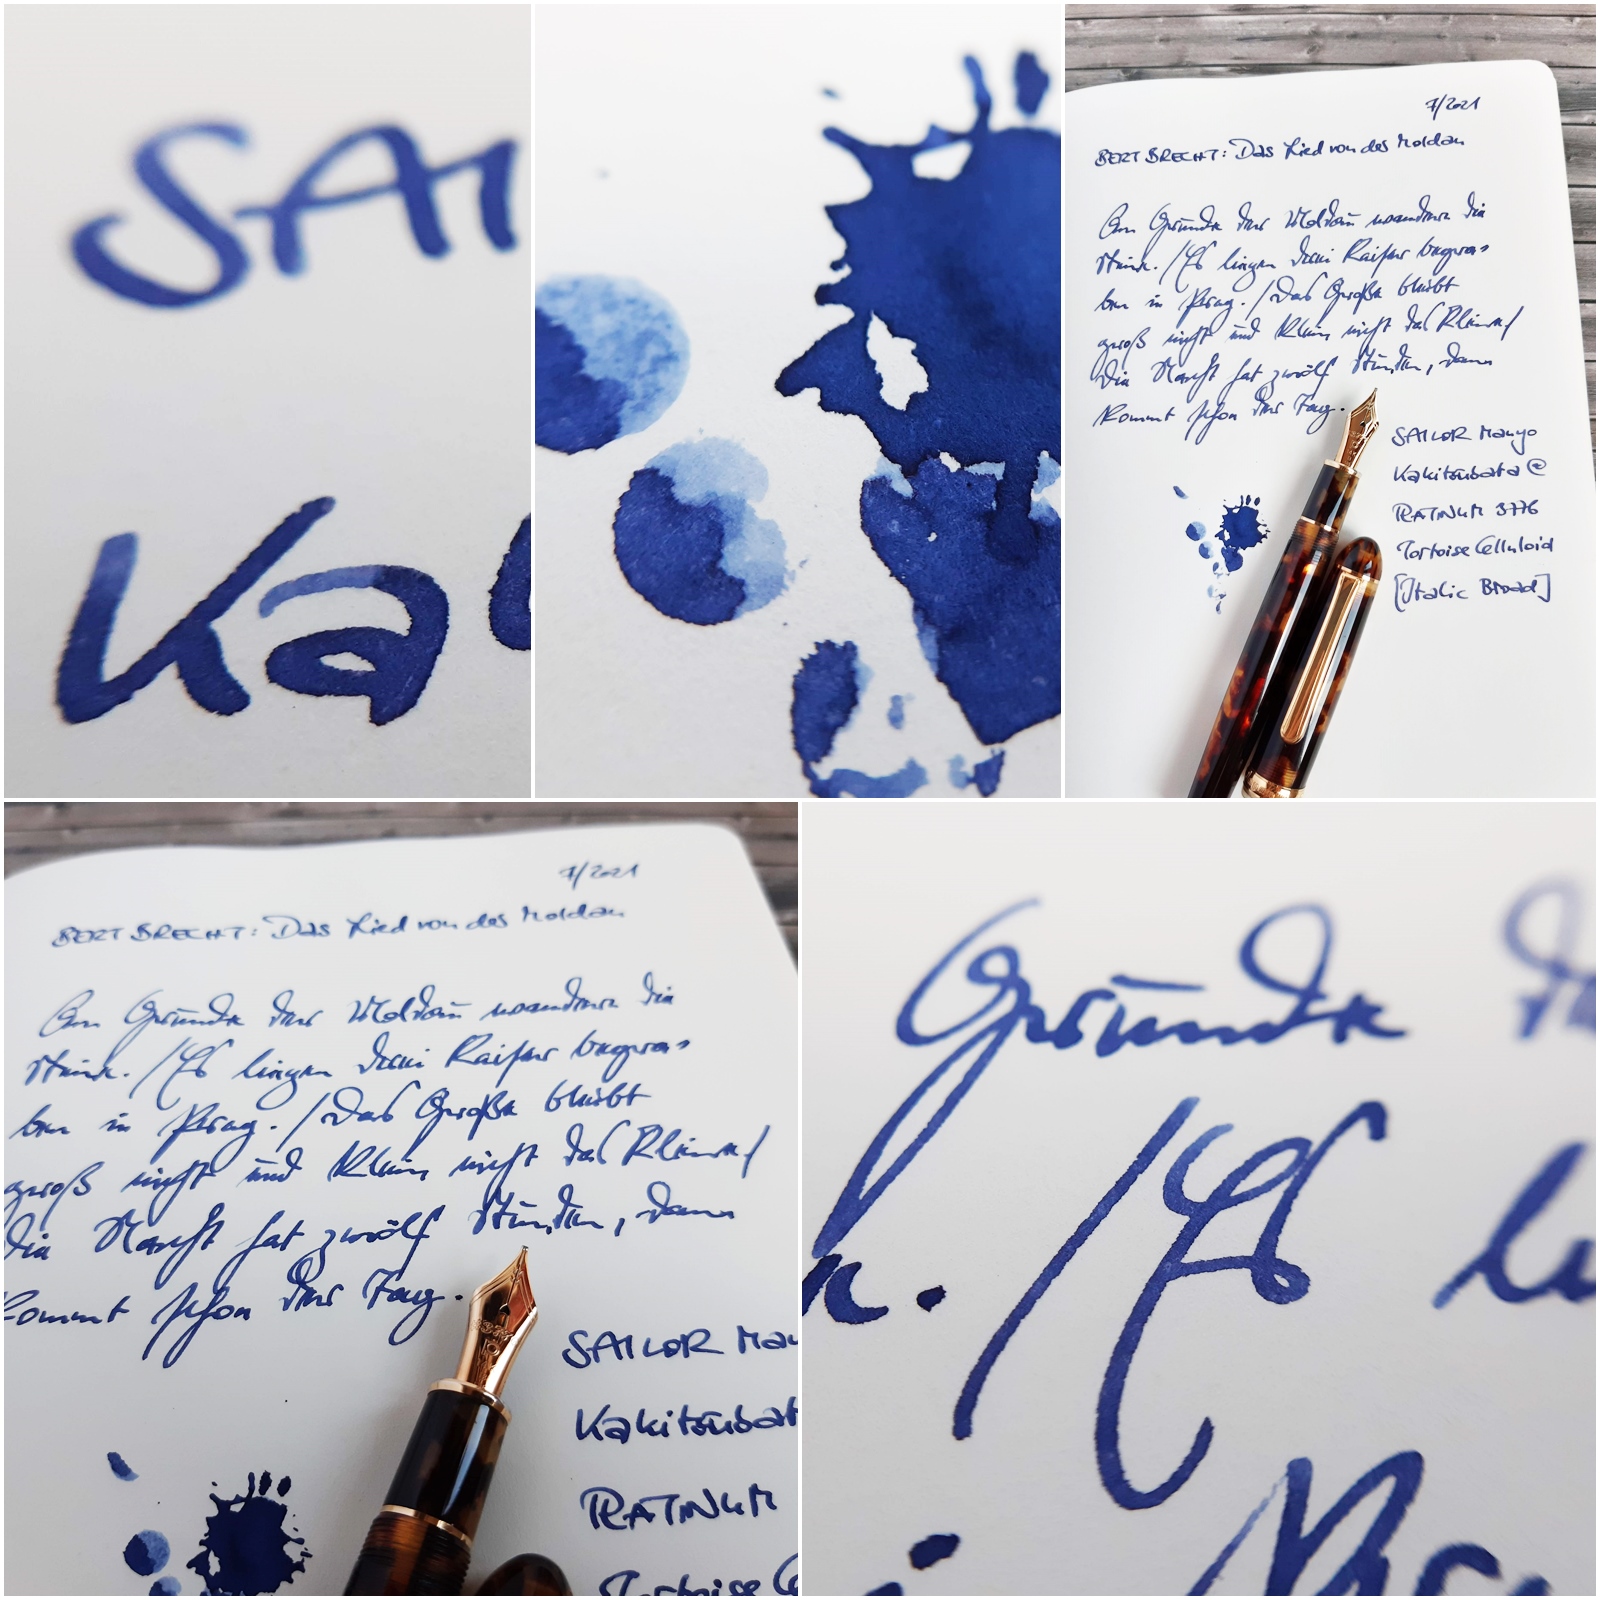 SAI
Ka
7/2021
BERT BRECHT: Das Lied von der Moldau
Am Grunde der Moldau wandern die
Steine. / Es liegen drei Kaiser begra=
ben in Prag. / Das Große bleibt
groß nicht und klein nicht das Kleine /
Die Nacht hat zwölf Stunden, dann
kommt schon der Tag.
SAILOR Manyo
Kakitsubata @
PLATINUM 3776
Tortoise Celluloid
[Italic Broad]
7/2021
BERT BRECHT: Das Lied von der Moldau
Am Grunde der Moldau wandern die
Steine. / Es liegen drei Kaiser begra=
ben in Prag. / Das Große bleibt
groß nicht und klein nicht das Kleine /
Die Nacht hat zwölf Stunden, dann
kommt schon der Tag.
SAILOR Man
Kakitsubat
PLATINUM
Tortoise C
Grunde d
. / Es li
Pr